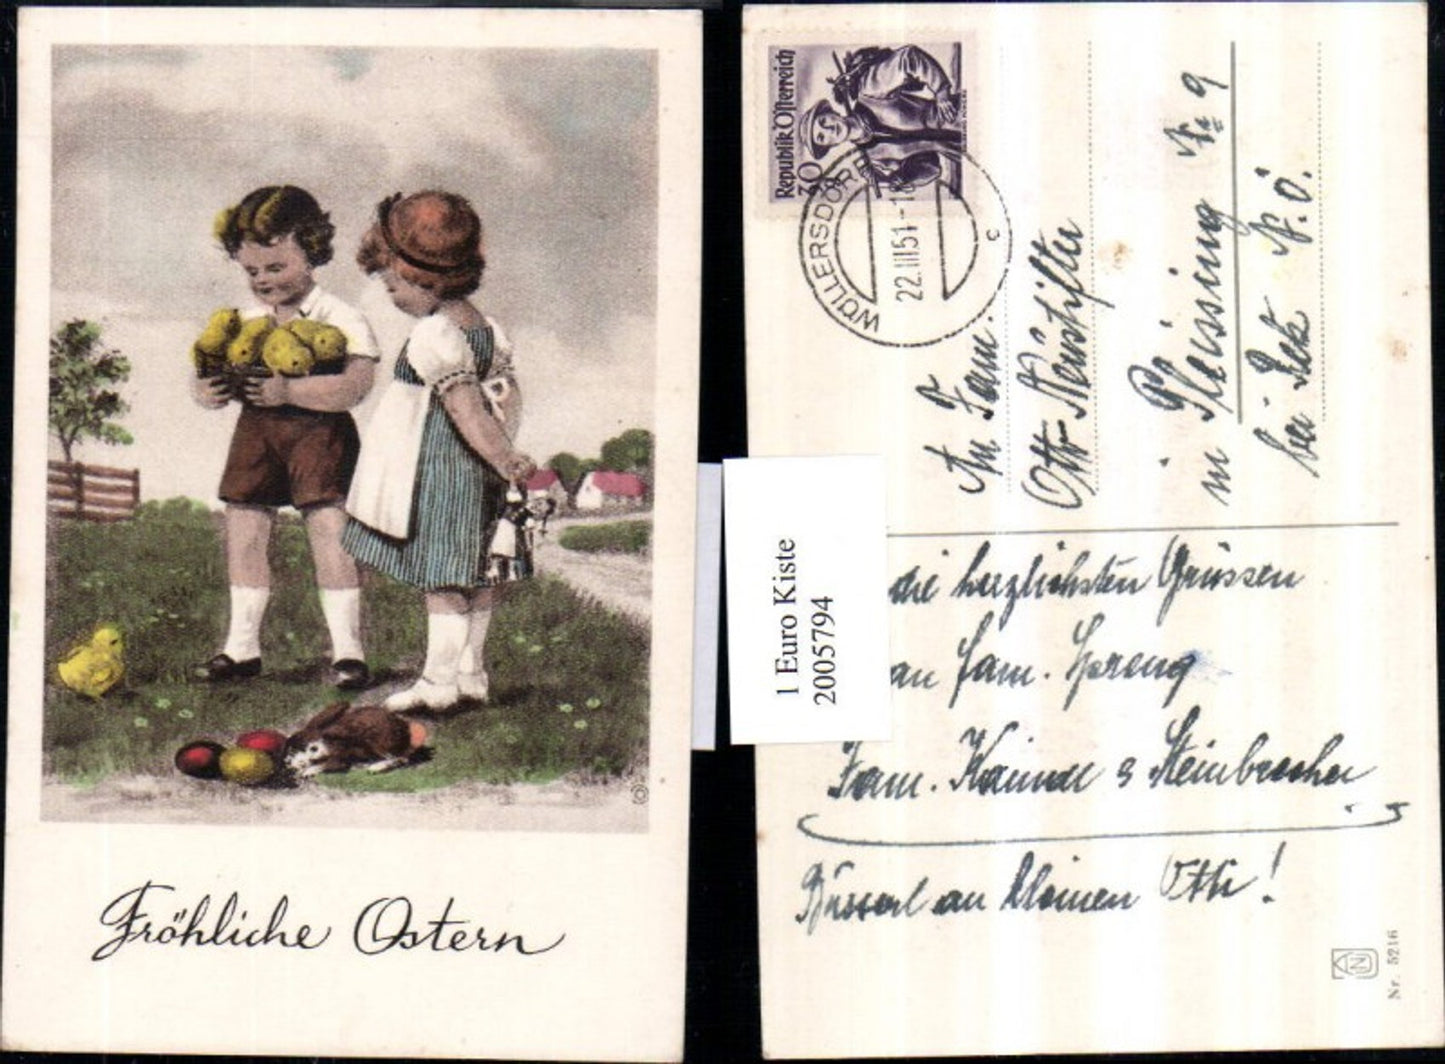 Fröhliche Ostern
Republik Österreich
70
WÖLLERSDORF
22.III 51-18
c
An Fam.
Otto Neustifter
in Pleissing Nr 9
bei Retz N.Ö.
1 Euro Kiste
2005794
die herzlichsten Grüssen
an Fam.
Fam. Steinbrecher
Busserl an kleinen Otti!
Nr. 5216